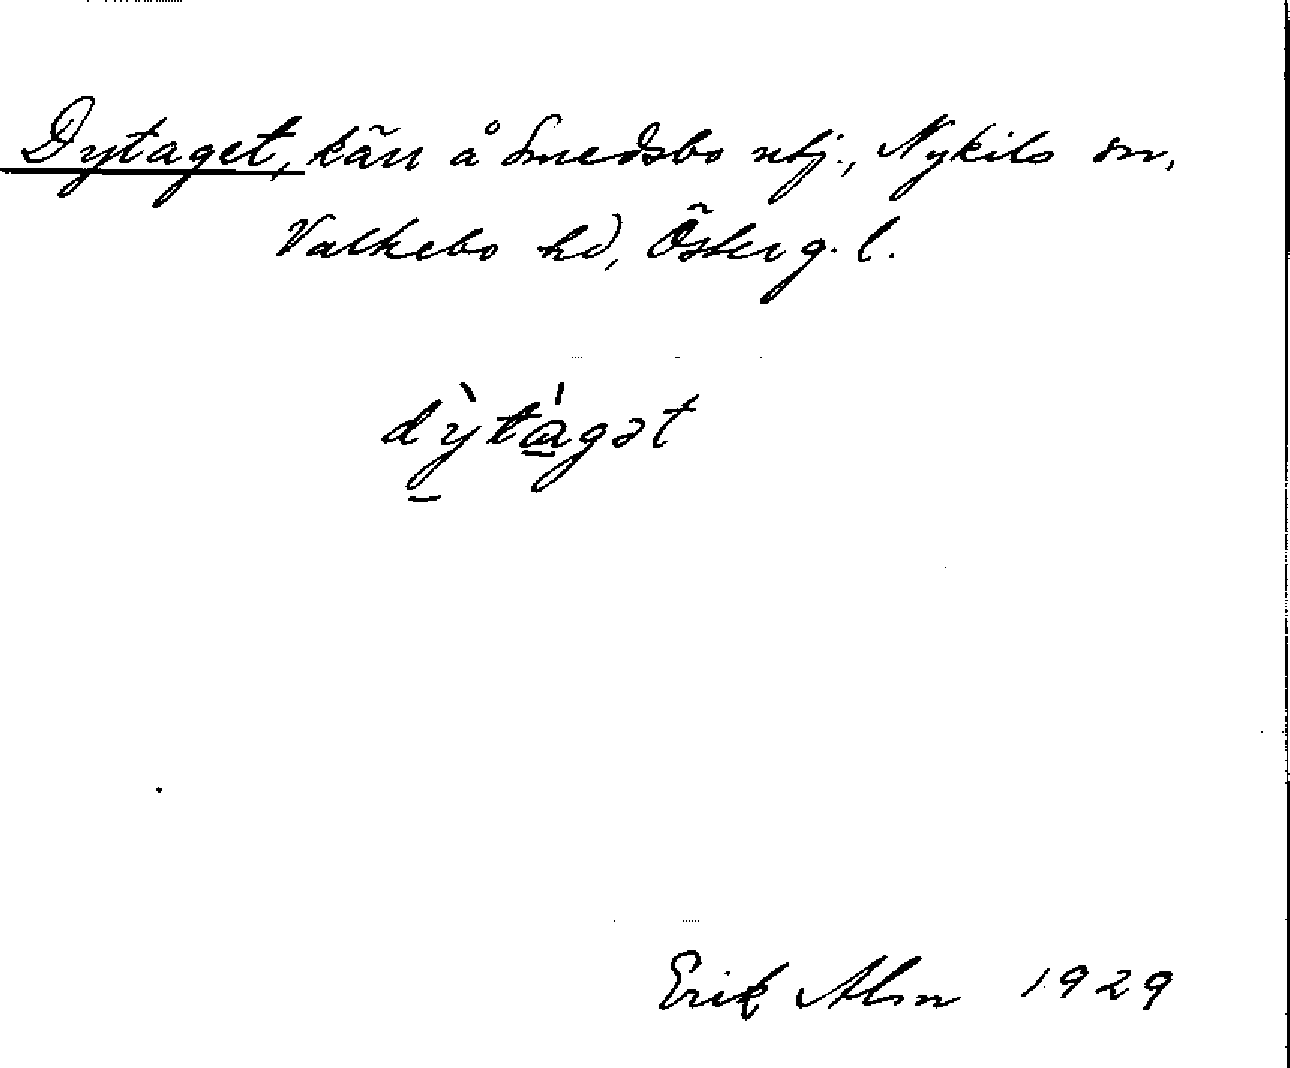 Dytaget, kärr å Smedsbo utj., Nykils sn,
Valkebo hd, Österg. l.
dỳtágət
Erik Alm 1929